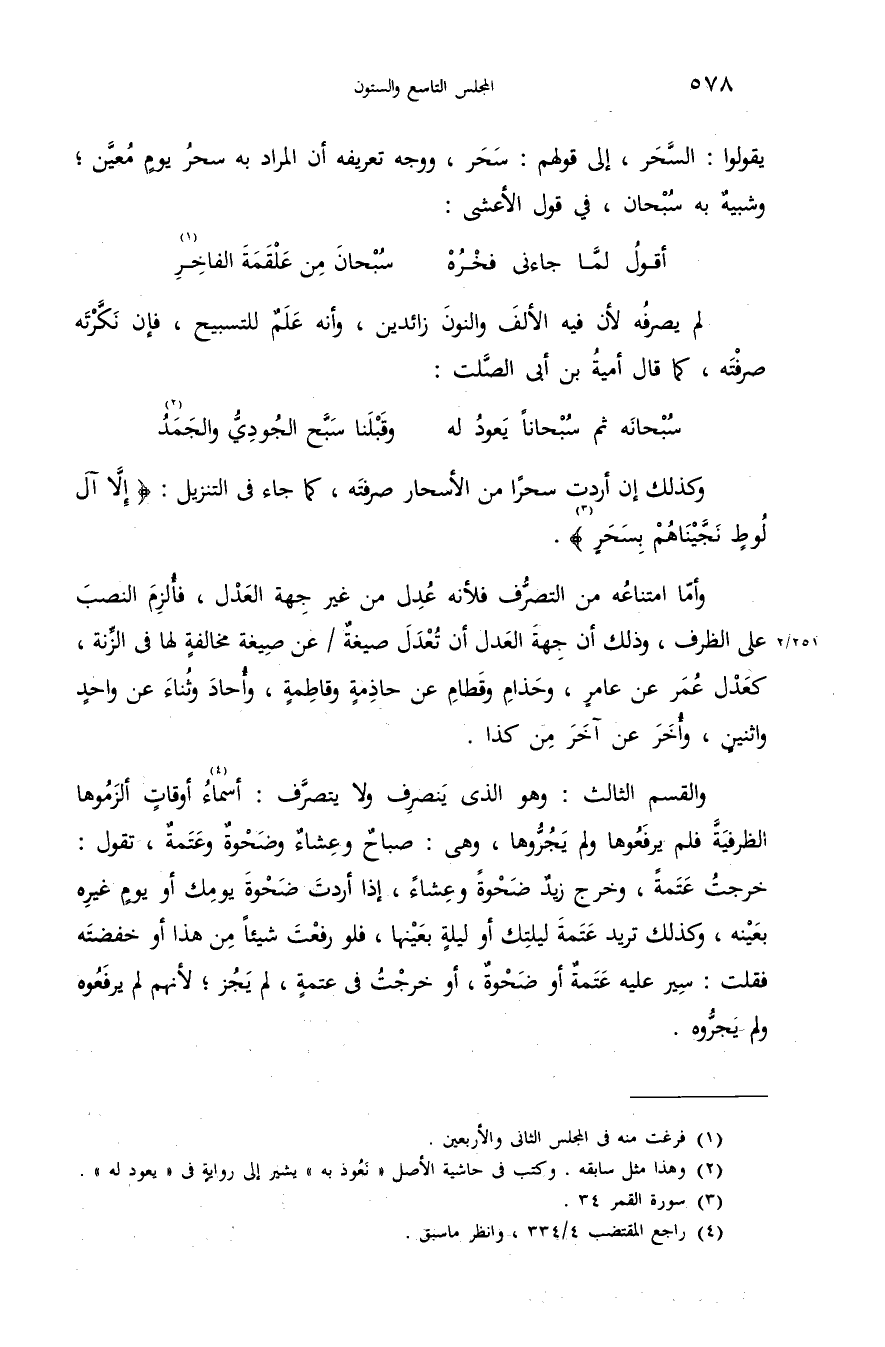 ٥٧٨ المجلس التاسع والستون
يقولوا : السَّحَر ، إلى قولهم : سَحَر ، ووجه تعريفه أن المراد به سحرُ يومٍ مُعيَّن ؛
وشبيهٌ به سُبْحان ، في قول الأعشى :
أقـولُ لمَّـا جاءنى فخْـرُهْ سُبْحانَ مِن عَلْقَمَةَ الفاخِـرِ (١)
لم يصرفُه لأن فيه الألفَ والنونَ زائدين ، وأنه عَلَمٌ للتسبيح ، فإن نَكَّرْتَه
صرفْتَه ، كما قال أميةُ بن أبى الصَّلت :
سُبْحانَه ثم سُبْحاناً يَعودُ له وقَبْلَنا سَبَّح الجُودِيُّ والجَمَدُ (٢)
وكذلك إن أردت سحرًا من الأسحار صرفتَه ، كما جاء فى التنزيل : ﴿ إِلَّا آلَ
لُوطٍ نَجَّيْنَاهُمْ بِسَحَرٍ (٣) ﴾ .
وأمّا امتناعُه من التصرُّف فلأنه عُدِل من غير جهة العَدْل ، فأُلزِمَ النصبَ
على الظرف ، وذلك أن جهةَ العَدل أن تُعْدَلَ صيغةٌ / عن صِيغة مخالفةٍ لها فى الزِّنة ، ٢/٢٥١
كعَدْل عُمَر عن عامرٍ ، وحَذامِ وقَطامِ عن حاذِمةٍ وقاطِمةٍ ، وأُحادَ وثُناءَ عن واحدٍ
واثنينِ ، وأُخَرَ عن آخَرَ مِن كذا .
والقسم الثالث : وهو الذى يَنصرِف ولا يتصرَّف : أسماءُ (٤) أوقاتٍ ألزَمُوها
الظرفيَةَّ فلم يرفَعُوها ولم يَجُرُّوها ، وهى : صباحٌ وعِشاءٌ وضَحْوةٌ وعَتَمةٌ ، تقول :
خرجتُ عَتَمةً ، وخرج زيدٌ ضَحْوةً وعِشاءً ، إذا أردتَ ضَحْوةَ يومِك أو يومٍ غيرِه
بعَيْنه ، وكذلك تريد عَتَمةَ ليلتِك أو ليلةٍ بعَيْنها ، فلو رفعْتَ شيئاً مِن هذا أو خفضتَه
فقلت : سِير عليه عَتَمةٌ أو ضَحْوةٌ ، أو خرجْتُ فى عتمةٍ ، لم يَجُز ؛ لأنهم لم يرفَعُوه
ولم يَجرُّوه .
(١) فرغت منه فى المجلس الثانى والأربعين .
(٢) وهذا مثل سابقه . وكتب فى حاشية الأصل « نَعُوذ به » يشير إلى روايةٍ فى « يعود له » .
(٣) سورة القمر ٣٤ .
(٤) راجع المقتضب ٣٣٤/٤ ، وانظر ماسبق .